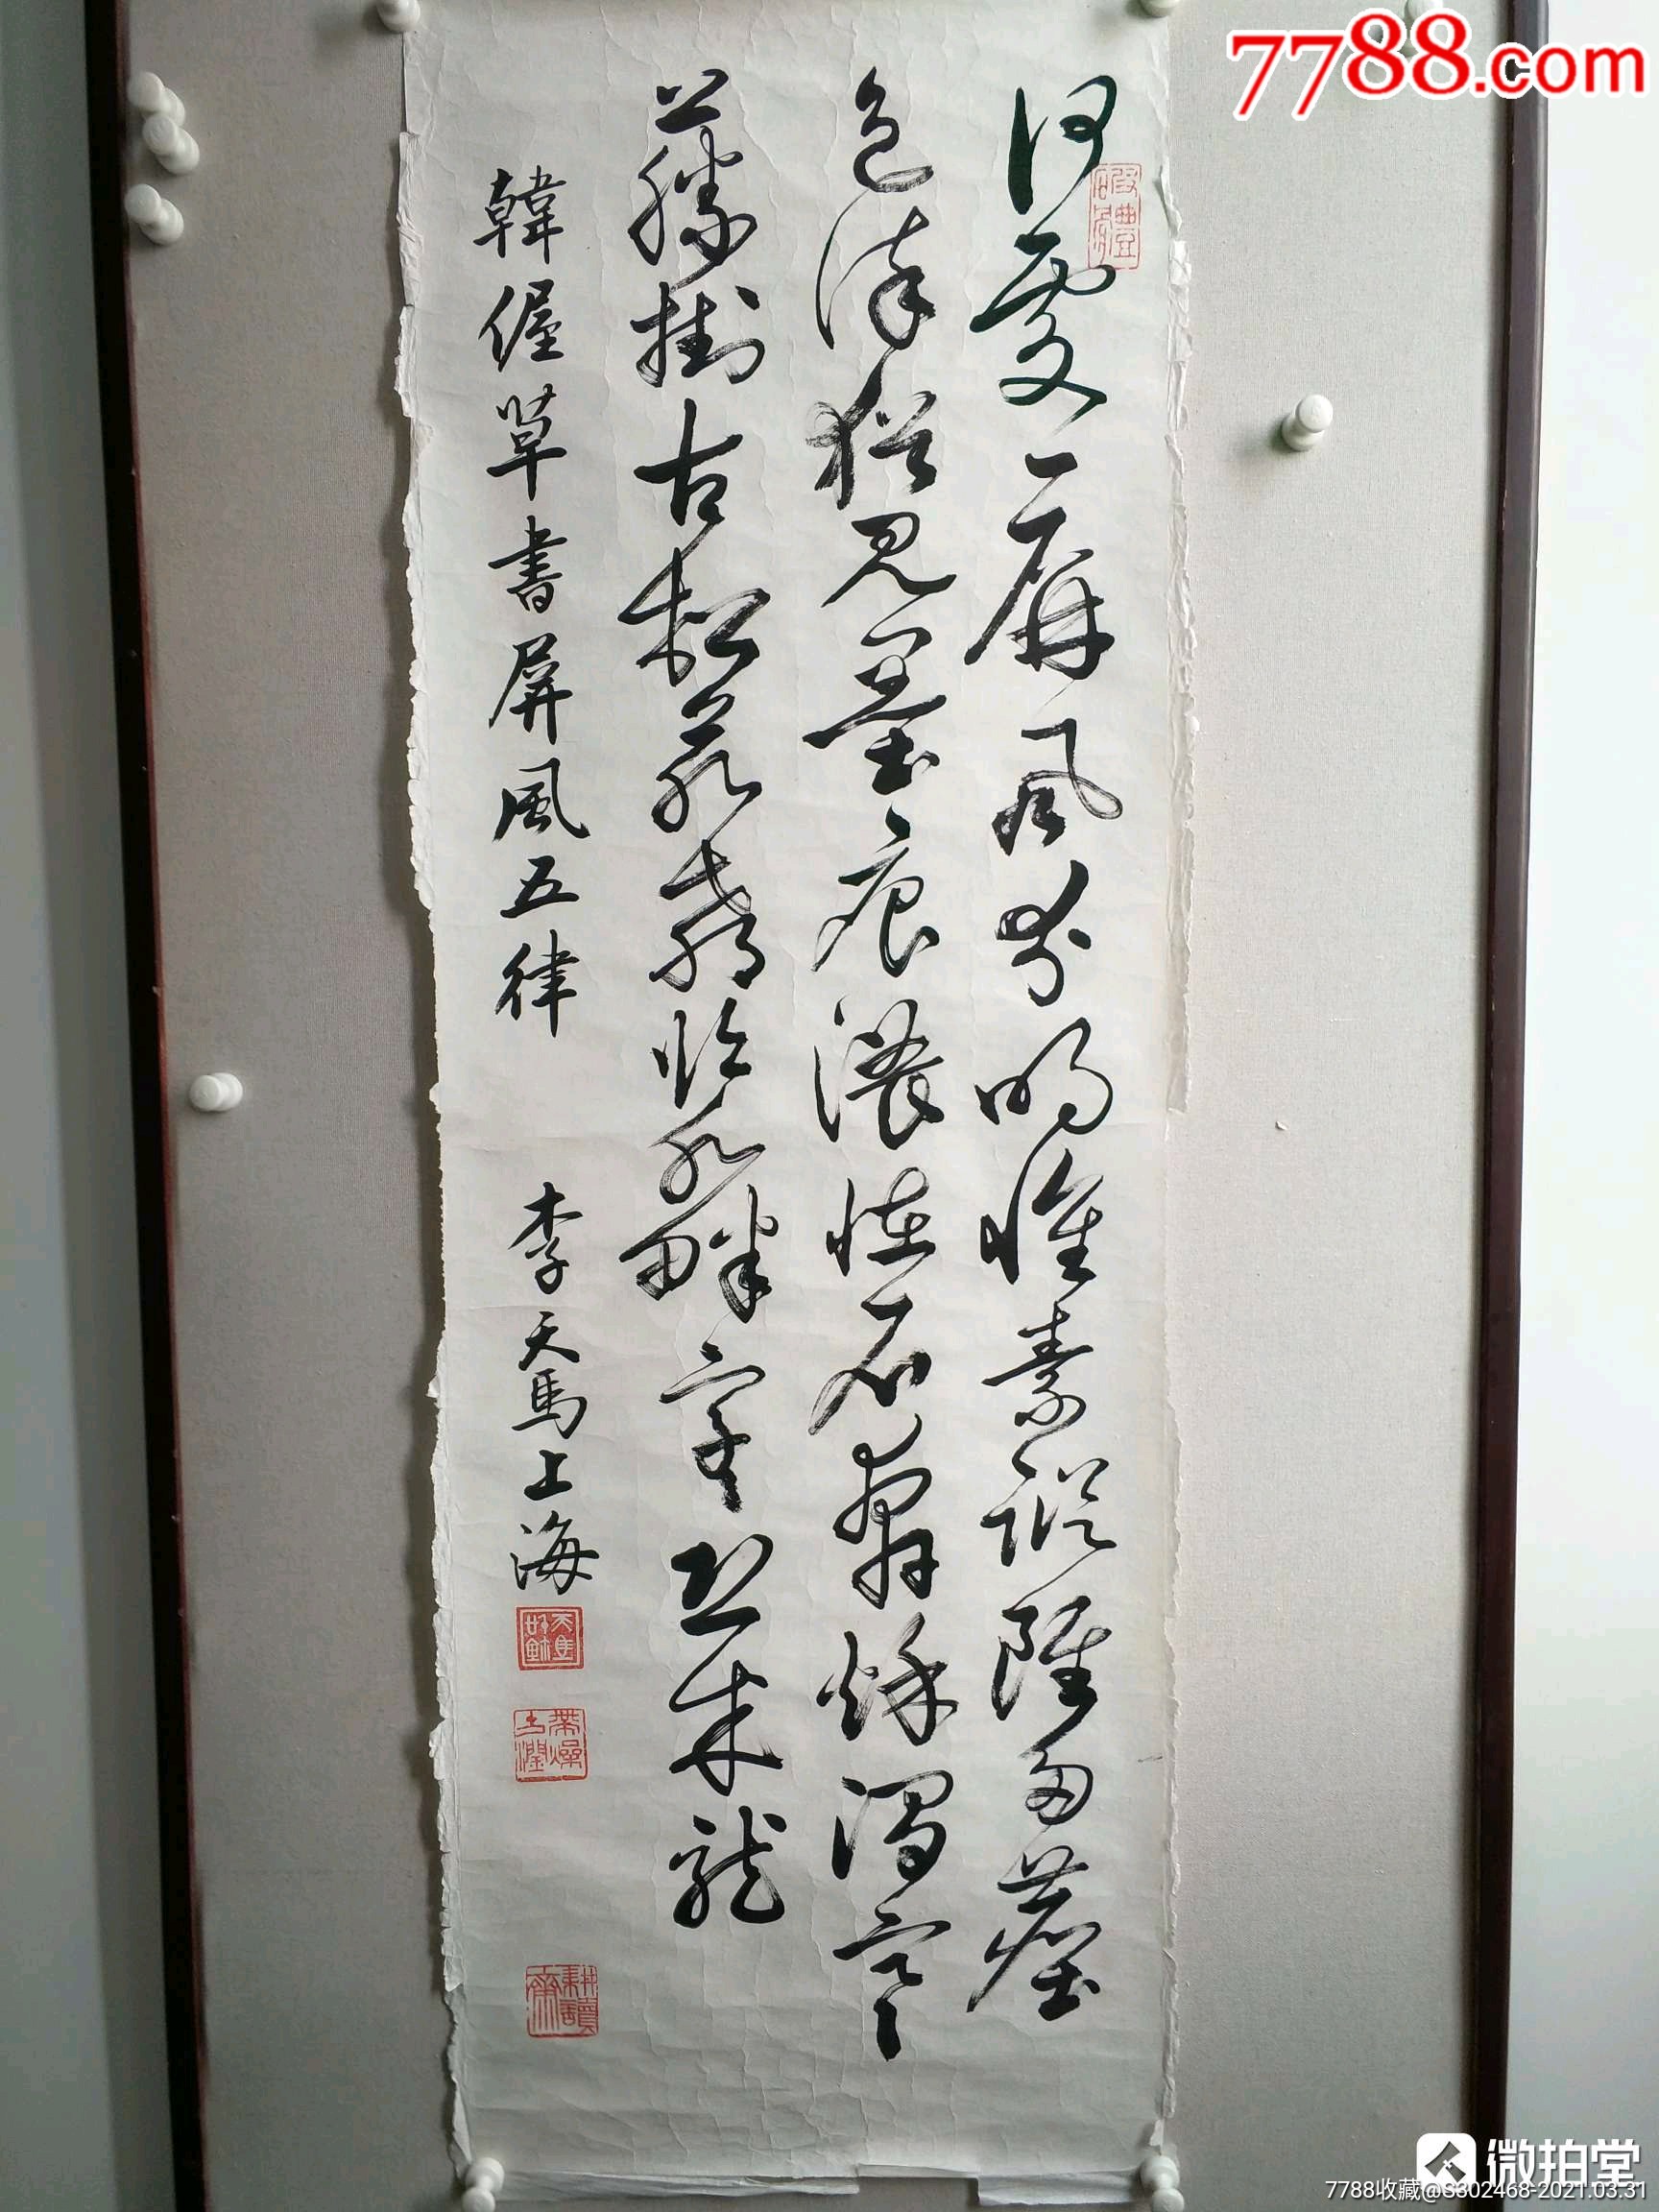 何處一屏風分明懷素蹤雖多塵
色染猶見墨痕濃怪石奔秋澗寒
藤掛古松若教臨水畔字〻恐成龍
韓偓草書屏風五律 李天馬上海
耕讀齋
7788.com
微拍堂
7788收藏@S302468-2021.03.31